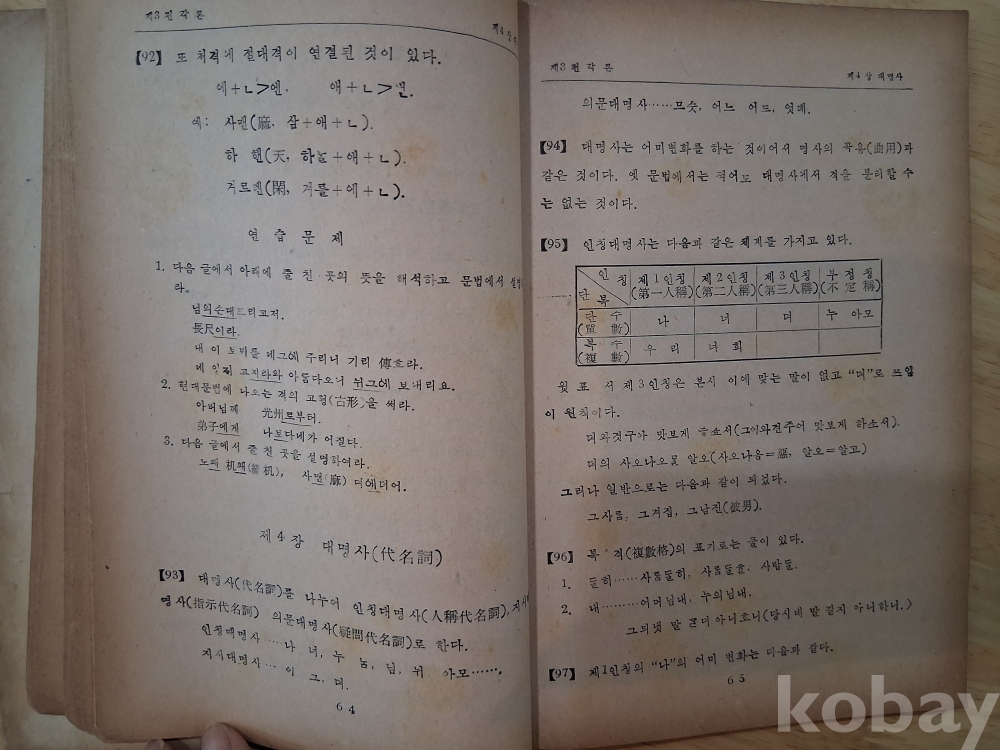 제3편 각론
제4장
【92】 또 처격에 절대격이 연결된 것이 있다.
에+ㄴ>엔. 애+ㄴ>앤.
예: 사맨(麻, 삼+애+ㄴ).
하 핸(天, 하늘+애+ㄴ).
겨르렌(閑, 겨를+에+ㄴ).
연 습 문 제
1. 다음 글에서 아래에 줄 친 곳의 뜻을 해석하고 문법에서
라.
님의손대드리고저.
長尺이라.
내 이 토비를 네그에 주리니 기리 傳호라.
고지라와 아름다오니 뉘그에 보내리요.
2. 현대문법에 나오는 격의 고형(古形)을 써라.
아버님께 光州로부터.
弟子에게 나보다네가 어질다.
3. 다음 글에서 줄 친 곳을 설명하여라.
机 사맨(麻) 더에더어.
제 4 장 대명사(代名詞)
【93】 대명사(代名詞)를 나누어 인칭대명사(人稱代名詞),지시
명사(指示代名詞) 의문대명사(疑問代名詞)로 한다.
인칭대명사 … 나, 너, 누 놈, 님, 뉘 아모…….
지시대명사… 이 그, 뎌.
64
제3편 각 론
제4장 대명사
의문대명사……므슷, 어느 어드, 엇뎨.
【94】 대명사는 어미변화를 하는 것이어서 명사의 곡용(曲用)과
같은 것이다. 옛 문법에서는 적어도 대명사에서 격을 분리할 수
는 없는 것이다.
【95】 인칭대명사는 다음과 같은 체계를 가지고 있다.
인 칭 제1인칭 제2인칭 제3인칭 부 정 칭
단 복 (第一人稱) (第二人稱) (第三人稱) (不 定 稱)
단 수 (單 數) 나 너 뎌 누 아모
복 수 (複 數) 우 리 너 희
윗 표 서 제3인칭은 본시 이에 맞는 말이 없고 “뎌”로 쓰임
이 원칙이다.
뎌와겻구아 맛보게 하소서).
뎌의 사오나오몰 알오(사오나옴=惡, 알오=알고)
그러나 일반으로는 다음과 같이 되었다.
그사름, 그겨집, 그남진(彼男).
【96】 복 격(複數格)의 표기로는 들이 있다.
1. 들히……사룸들히, 사룸들흘. 사람들.
2. 내………어머님내, 누의님내.
그듸냇 말 아니호니(당시네 말 아니하니.)
【97】 제1인칭의 “나”의 어미 변화는 다음과 같다.
65
kobay